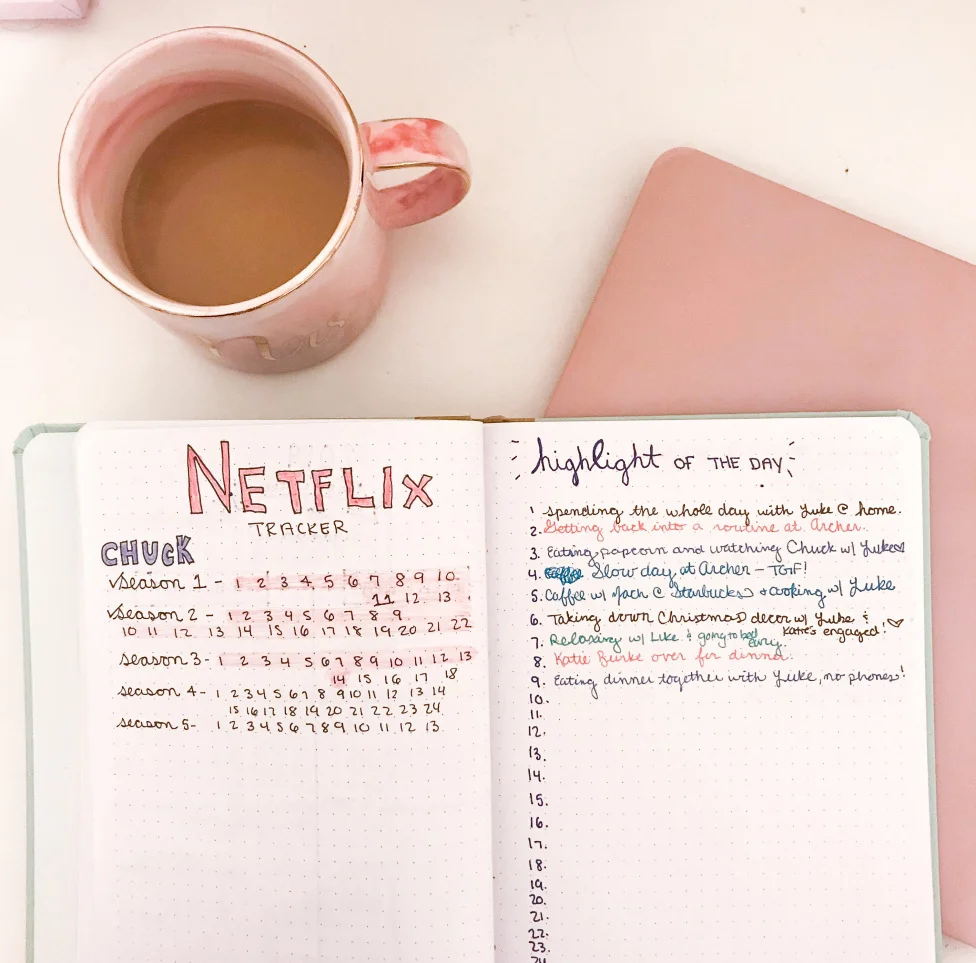 NETFLIX
TRACKER
CHUCK
✓Season 1 - 1 2 3 4 5 6 7 8 9 10
11 12 13
✓Season 2 - 1 2 3 4 5 6 7 8 9
10 11 12 13 14 15 16 17 18 19 20 21 22
Season 3 - 1 2 3 4 5 6 7 8 9 10 11 12 13
14 15 16 17 18
Season 4 - 1 2 3 4 5 6 7 8 9 10 11 12 13 14
15 16 17 18 19 20 21 22 23 24
Season 5 - 1 2 3 4 5 6 7 8 9 10 11 12 13
highlight OF THE DAY
1 spending the whole day with Luke @ home.
2. Getting back into a routine at Archer.
3. Eating popcorn and watching Chuck w/ Luke
4. Slow day at Archer - TGIF!
5. Coffee w/ Mach @ Starbucks + cooking w/ Luke
6. Taking down Christmas decor w/ Luke & Katie's engaged! ♡
7. Relaxing w/ Like & going to bed early.
8. Katie Burke over for dinner.
9. Eating dinner together with Luke, no phones!
10.
11.
12.
13.
14.
15.
16.
17.
18.
19.
20.
21.
22.
23.
24